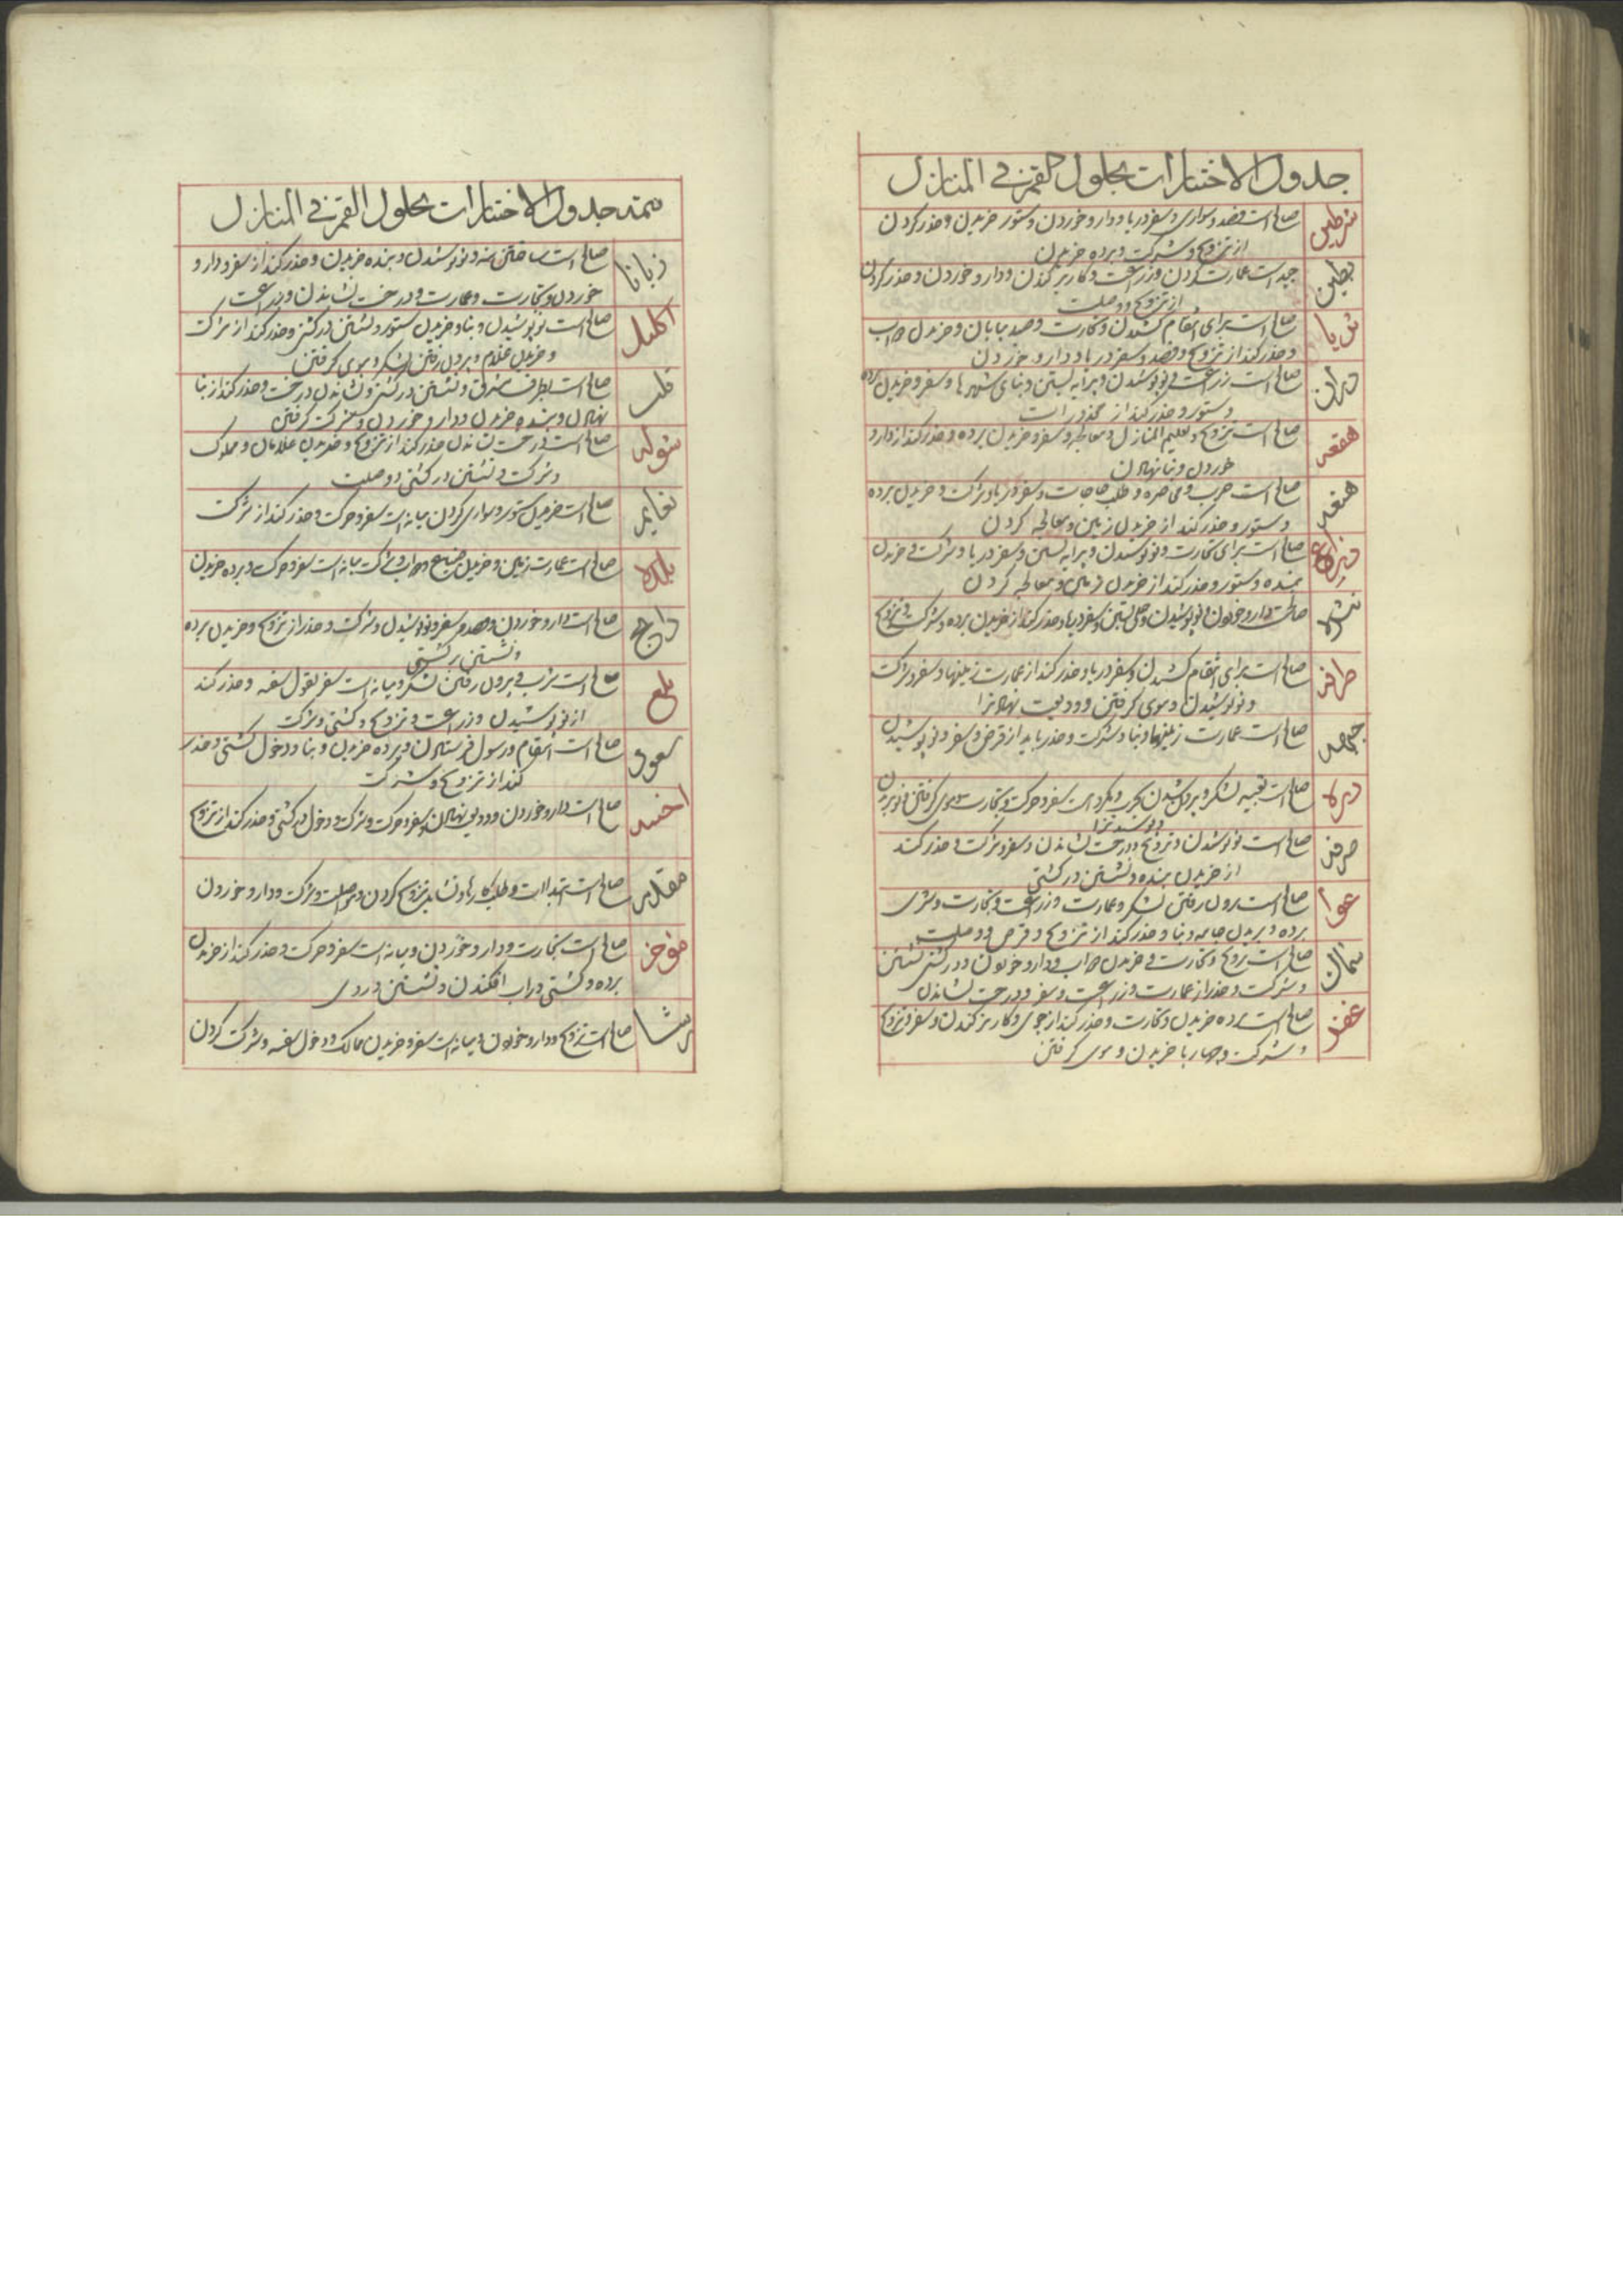 جدول الاختیارات بحلول القمر فی المنازل
شرطین
صالح است فصد و سواری و سفر دریا و دارو خوردن و ستور خریدن و حذر کردن
از تزویج و شرکت و برده خریدن
بطین
جید است عمارت کردن و زراعت و کاریز کندن و دارو خوردن و حذر کردن
از تزویج و وصلت
ثریا
صالح است برای انتقام کشیدن و تجارت و صید بیابان و خریدن دواب
و حذر کند از تزویج و فصد و سفر دریا و دارو خوردن
دبران
صالح است زراعت و نو پوشیدن و پیرایه بستن و بنای شهرها و سفر و خریدن برده
و ستور و حذر کند از
هقعه
صالح است تزویج و تعلیم و معالجه و سفر و خریدن برده و حذر کند از دارو
خوردن و بنا نهادن
هنعه
صالح است حرب و محاصره و طلب حاجات و سفر دریا و شرکت و خریدن برده
و ستور و حذر کند از خریدن زمین و معالجه کردن
ذراع
صالح است برای تجارت و نو پوشیدن و پیرایه بستن و سفر دریا و شرکت و خریدن
بنده و ستور و حذر کند از خریدن زمین و معالجه کردن
نثره
صالحست دارو خوردن و نو پوشیدن و حلی بستن و سفر دریا و حذر کند از خریدن برده و شرکت و تزویج
طرفه
صالح است برای انتقام کشیدن و سفر دریا و حذر کند از عمارت زمینها و سفر و شرکت
و نو پوشیدن و موی گرفتن و ودیعت نهادن
جبهه
صالح است عمارت زمینها و بنا و شرکت و حذر باید از قرض و سفر و نو پوشیدن
زبره
صالح است تعبیه لشکر و بیرون شدن بحرب و سفر و حرکت و تجارت و موی گرفتن و نو بریدن
صرفه
صالح است نو پوشیدن و تزویج و درخت نشاندن و سفر و شرکت و حذر کند
از خریدن بنده و نشستن در کشتی
عوا
صالح است بیرون رفتن لشکر و عمارت و زراعت و تجارت و شری
برده و بریدن جامه و بنا و حذر کند از تزویج و قرض و وصلت
سماک
صالح است تزویج و تجارت و خریدن دواب و دارو خوردن و در کشتی نشستن
و شرکت و حذر از عمارت و زراعت و سفر و درخت نشاندن
غفر
صالح است برده خریدن و تجارت و حذر کند از جوی و کاریز کندن و سفر و تزویج
و شرکت و چهارپا خریدن و موی گرفتن
تتمه جدول الاختیارات بحلول القمر فی المنازل
زبانا
صالح است ساختن و نو پوشیدن و بنده خریدن و حذر کند از سفر و دارو
خوردن و تجارت و عمارت و درخت نشاندن و زراعت
اکلیل
صالح است نو پوشیدن و بنا و خریدن ستور و نشستن در کشتی و حذر کند از شرکت
و خریدن غلام و بیرون رفتن لشکر و موی گرفتن
قلب
صالح است بطرف مشرق و نشستن در کشتی و نشاندن درخت و حذر کند از بنا
نهادن و بنده خریدن و دارو خوردن و شرکت گرفتن
شوله
صالح است درخت نشاندن حذر کند از تزویج و خریدن غلامان و مملوک
و شرکت و نشستن در کشتی و وصلت
نعایم
صالح است خریدن ستور و سواری کردن میانه است سفر و حرکت و حذر کند از شرکت
بلده
صالح است عمارت زمین و خریدن ضیاع و دواب و شرکت میانه است سفر و حرکت و برده خریدن
ذابح
صالح است دارو خوردن و فصد و سفر و نو پوشیدن و شرکت و حذر از تزویج و خریدن برده
و نشستن بر کشتی
بلع
صالح است شرب و بیرون رفتن لشکر و میانه است سفر و حذر کند
از نو پوشیدن و زراعت و تزویج و کشتی و شرکت
سعود
صالح است انتقام و رسول فرستادن و برده خریدن و بنا و دخول کشتی و حذر
کند از تزویج و شرکت
اخبیه
صالح است دارو خوردن و ودیعت نهادن و سفر و حرکت و شرکت و دخول در کشتی و حذر کند از تزویج
مقدم
صالح است ابتداات و طلب کارها و نشاید تزویج کردن و مواصلت و شرکت و دارو خوردن
موخر
صالح است تجارت و دارو خوردن و میانه است سفر و حرکت و حذر کند از خریدن
برده و کشتی در آب افکندن و نشستن در وی
رشا
صالح است تزویج و دارو خوردن و میانه است سفر و خریدن ممالک و دخول سفینه و شرکت کردن